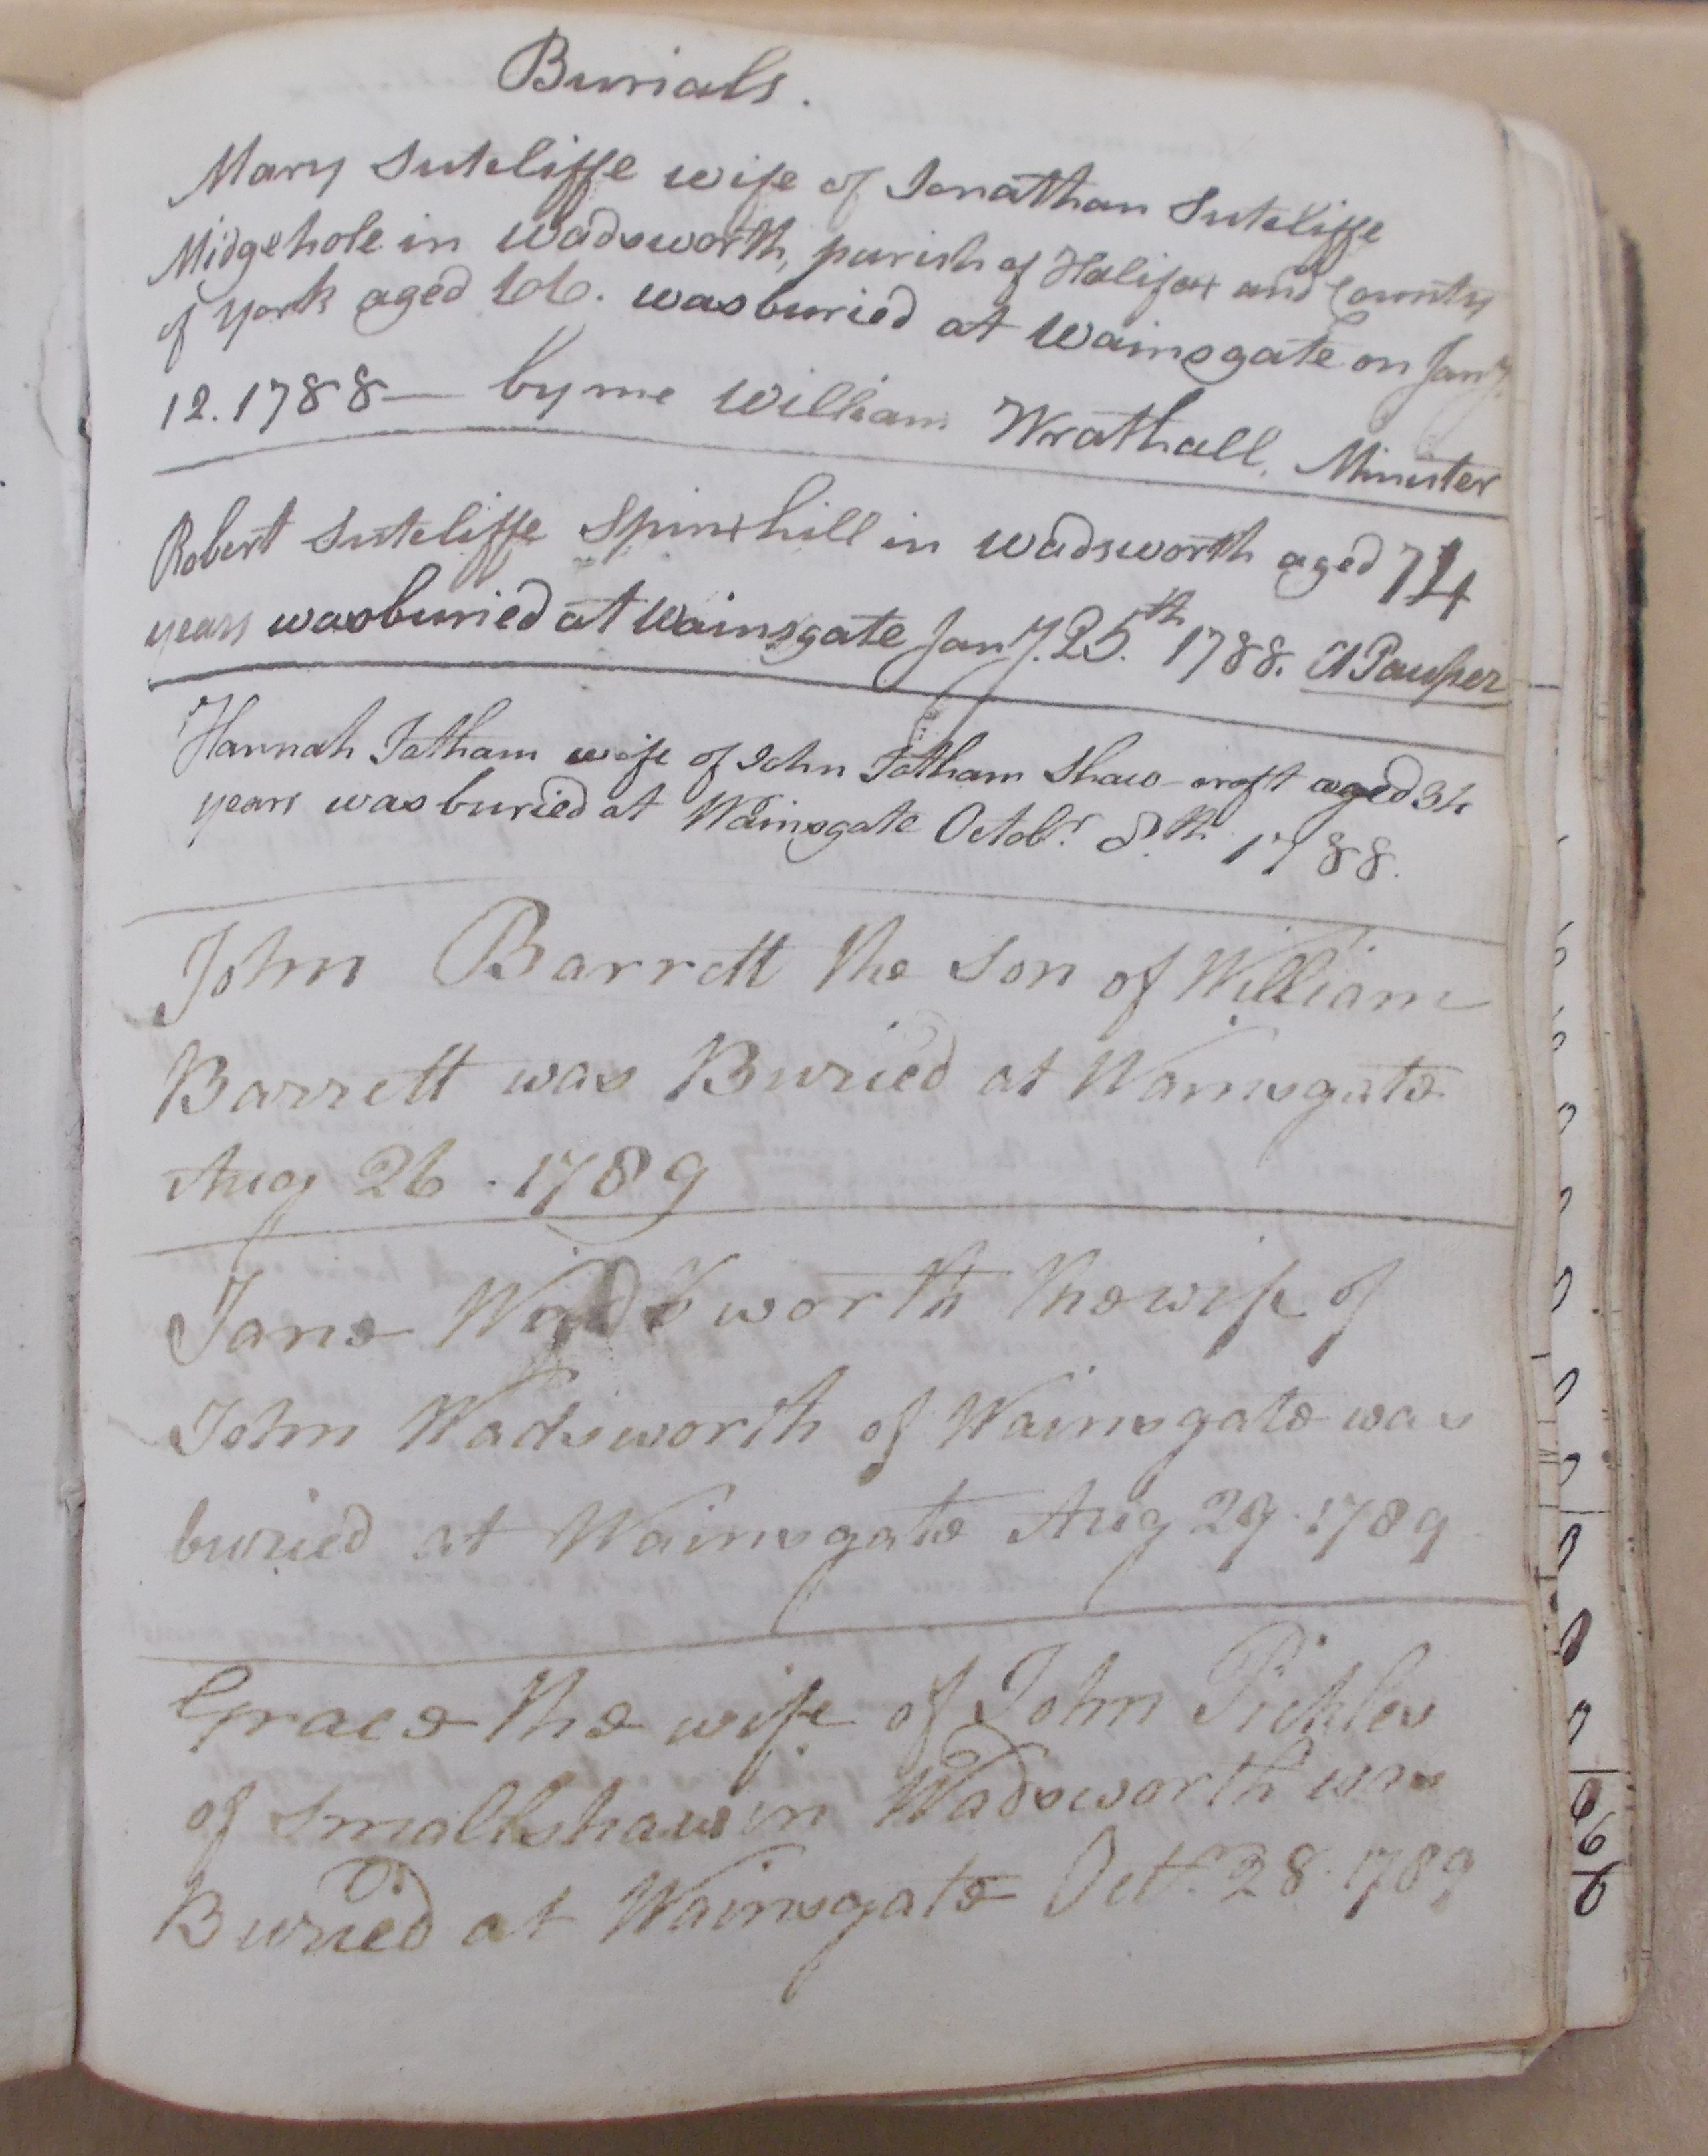 Burials.
Mary Sutcliffe wife of Jonathan Sutcliffe
Midgehole in Wadsworth, parish of Halifax and County
of York aged 66. was buried at Wainsgate on Jany.
12. 1788 — by me William Wrathall, Minister
Robert Sutcliffe Spinkhill in Wadsworth aged 74
years was buried at Wainsgate Jany. 25.th 1788. A Pauper
Hannah Tatham wife of John Tatham Shaw-croft aged 34
years was buried at Wainsgate Octobr. 8.th 1788.
John Barrett the son of William
Barrett was Buried at Wainsgate
Aug 26 . 1789
Jane Wadsworth the wife of
John Wadsworth of Wainsgate was
buried at Wainsgate Aug 29 . 1789
Grace the wife of John Pickles
of Smallshaw in Wadsworth was
Buried at Wainsgate Oct. 28 . 1789